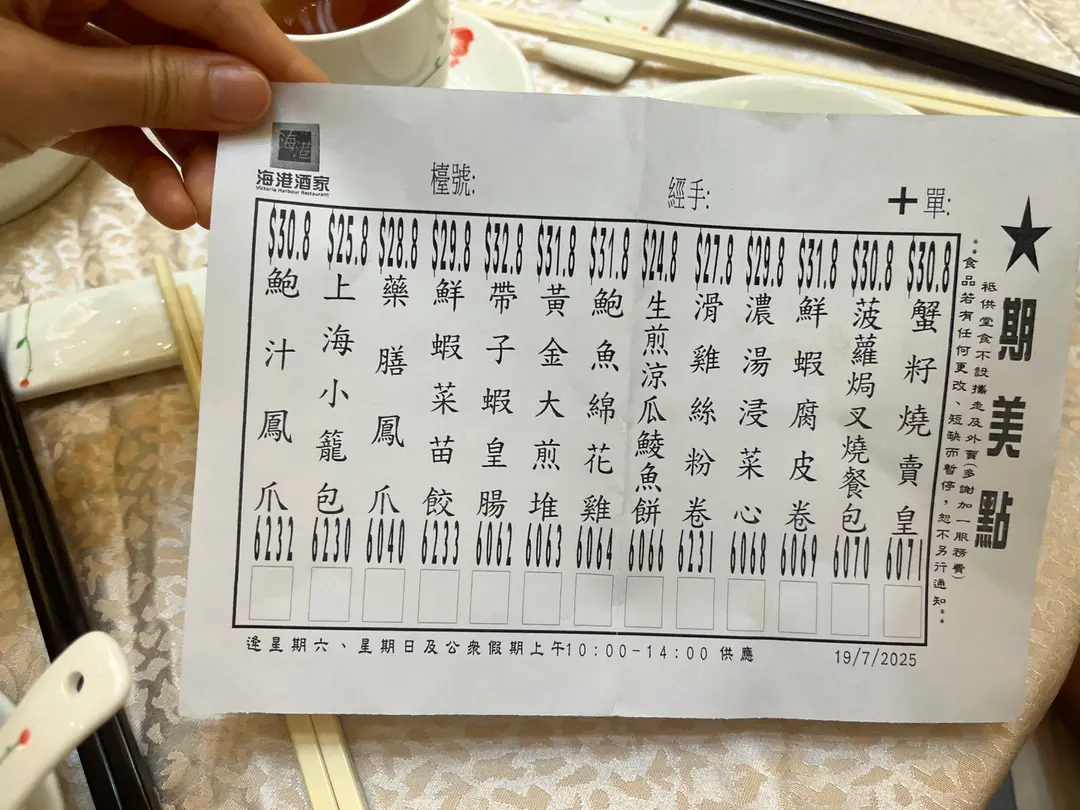 海港
海港酒家
Victoria Harbour Restaurant
檯號:
經手:
+單:
★期美點
祗供堂食不設攜走及外賣(多謝加一服務費)
**食品若有任何更改、短缺而暫停,恕不另行通知**
$30.8 蟹籽燒賣皇 6071
$30.8 菠蘿焗叉燒餐包 6070
$31.8 鮮蝦腐皮卷 6069
$29.8 濃湯浸菜心 6068
$27.8 滑雞絲粉卷 6231
$24.8 生煎涼瓜鯪魚餅 6066
$31.8 鮑魚綿花雞 6064
$31.8 黃金大煎堆 6063
$32.8 帶子蝦皇腸 6062
$29.8 鮮蝦菜苗餃 6233
$28.8 藥膳鳳爪 6040
$25.8 上海小籠包 6230
$30.8 鮑汁鳳爪 6232
逢星期六、星期日及公衆假期上午10:00-14:00 供應
19/7/2025